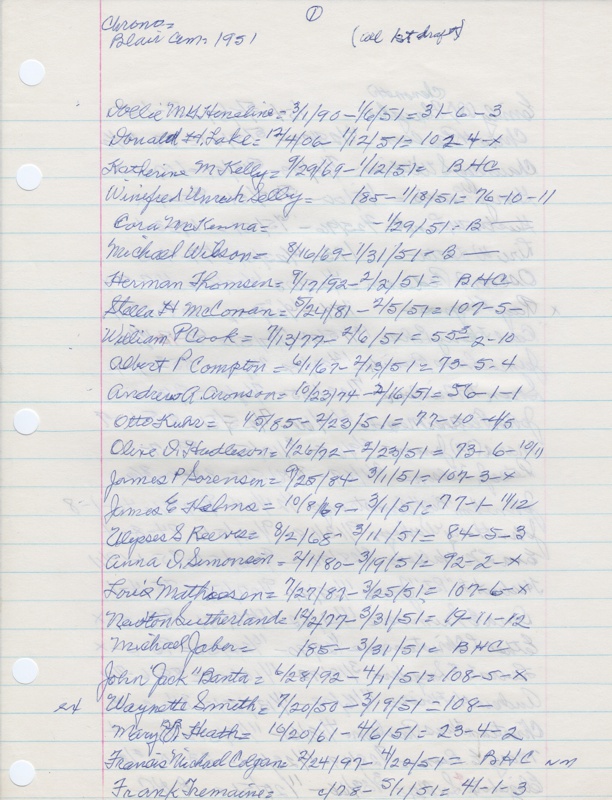 Chrono=
①
Blair Cem. 1951
(col 1st draft)
Dollie M.H. Hensline = 3/1/90 - 1/6/51 = 31-6-3
Donald H. Lake = 12/4/06 - 1/12/51 = 102-4-x
Katherine M. Kelly = 9/29/69 - 1/12/51 = BHC
Winifred Unrah Selby = 185 - 1/18/51 = 76-10-11
Cora McKenna = - 1/29/51 = B —
Michael Wilson = 8/16/69 - 1/31/51 = B —
Herman Thomsen = 9/17/92 - 2/2/51 = BHC
Stella H McCowan = 5/24/81 - 2/5/51 = 107-5-
William P Cook = 7/13/77 - 2/6/51 = 55-2-10
Albert P Compton = 6/1/67 - 2/13/51 = 73-5-4
Andrew A. Aronson = 10/23/74 - 2/16/51 = 56-1-1
Otto Kuhr = 1/5/85 - 2/23/51 = 77-10-4/5
Olive D. Hudleson = 1/26/72 - 2/23/51 = 73-6-10/11
James P Sorensen = 9/25/84 - 3/1/51 = 107-3-x
James E Holms = 10/8/69 - 3/1/51 = 77-1-11/12
Ulysses S Reeves = 8/2/68 - 3/11/51 = 84-5-3
Anna D. Simonson = 2/1/80 - 3/19/51 = 92-2-x
Loris Mathieson = 7/27/87 - 3/25/51 = 107-6-x
Newton Sutherland = 12/2/77 - 3/31/51 = 19-11-12
Michael Jaber = 185 - 3/31/51 = BHC
John "Jack" Banta = 6/28/92 - 4/1/51 = 108-5-x
Waynette Smith = 7/20/50 - 3/19/51 = 108-
Mary Heath = 10/20/61 - 4/6/51 = 23-4-2
Francis Michael Colgan = 2/24/97 - 4/28/51 = BHC nm
Frank Tremaine = c/78 - 5/1/51 = 41-1-3